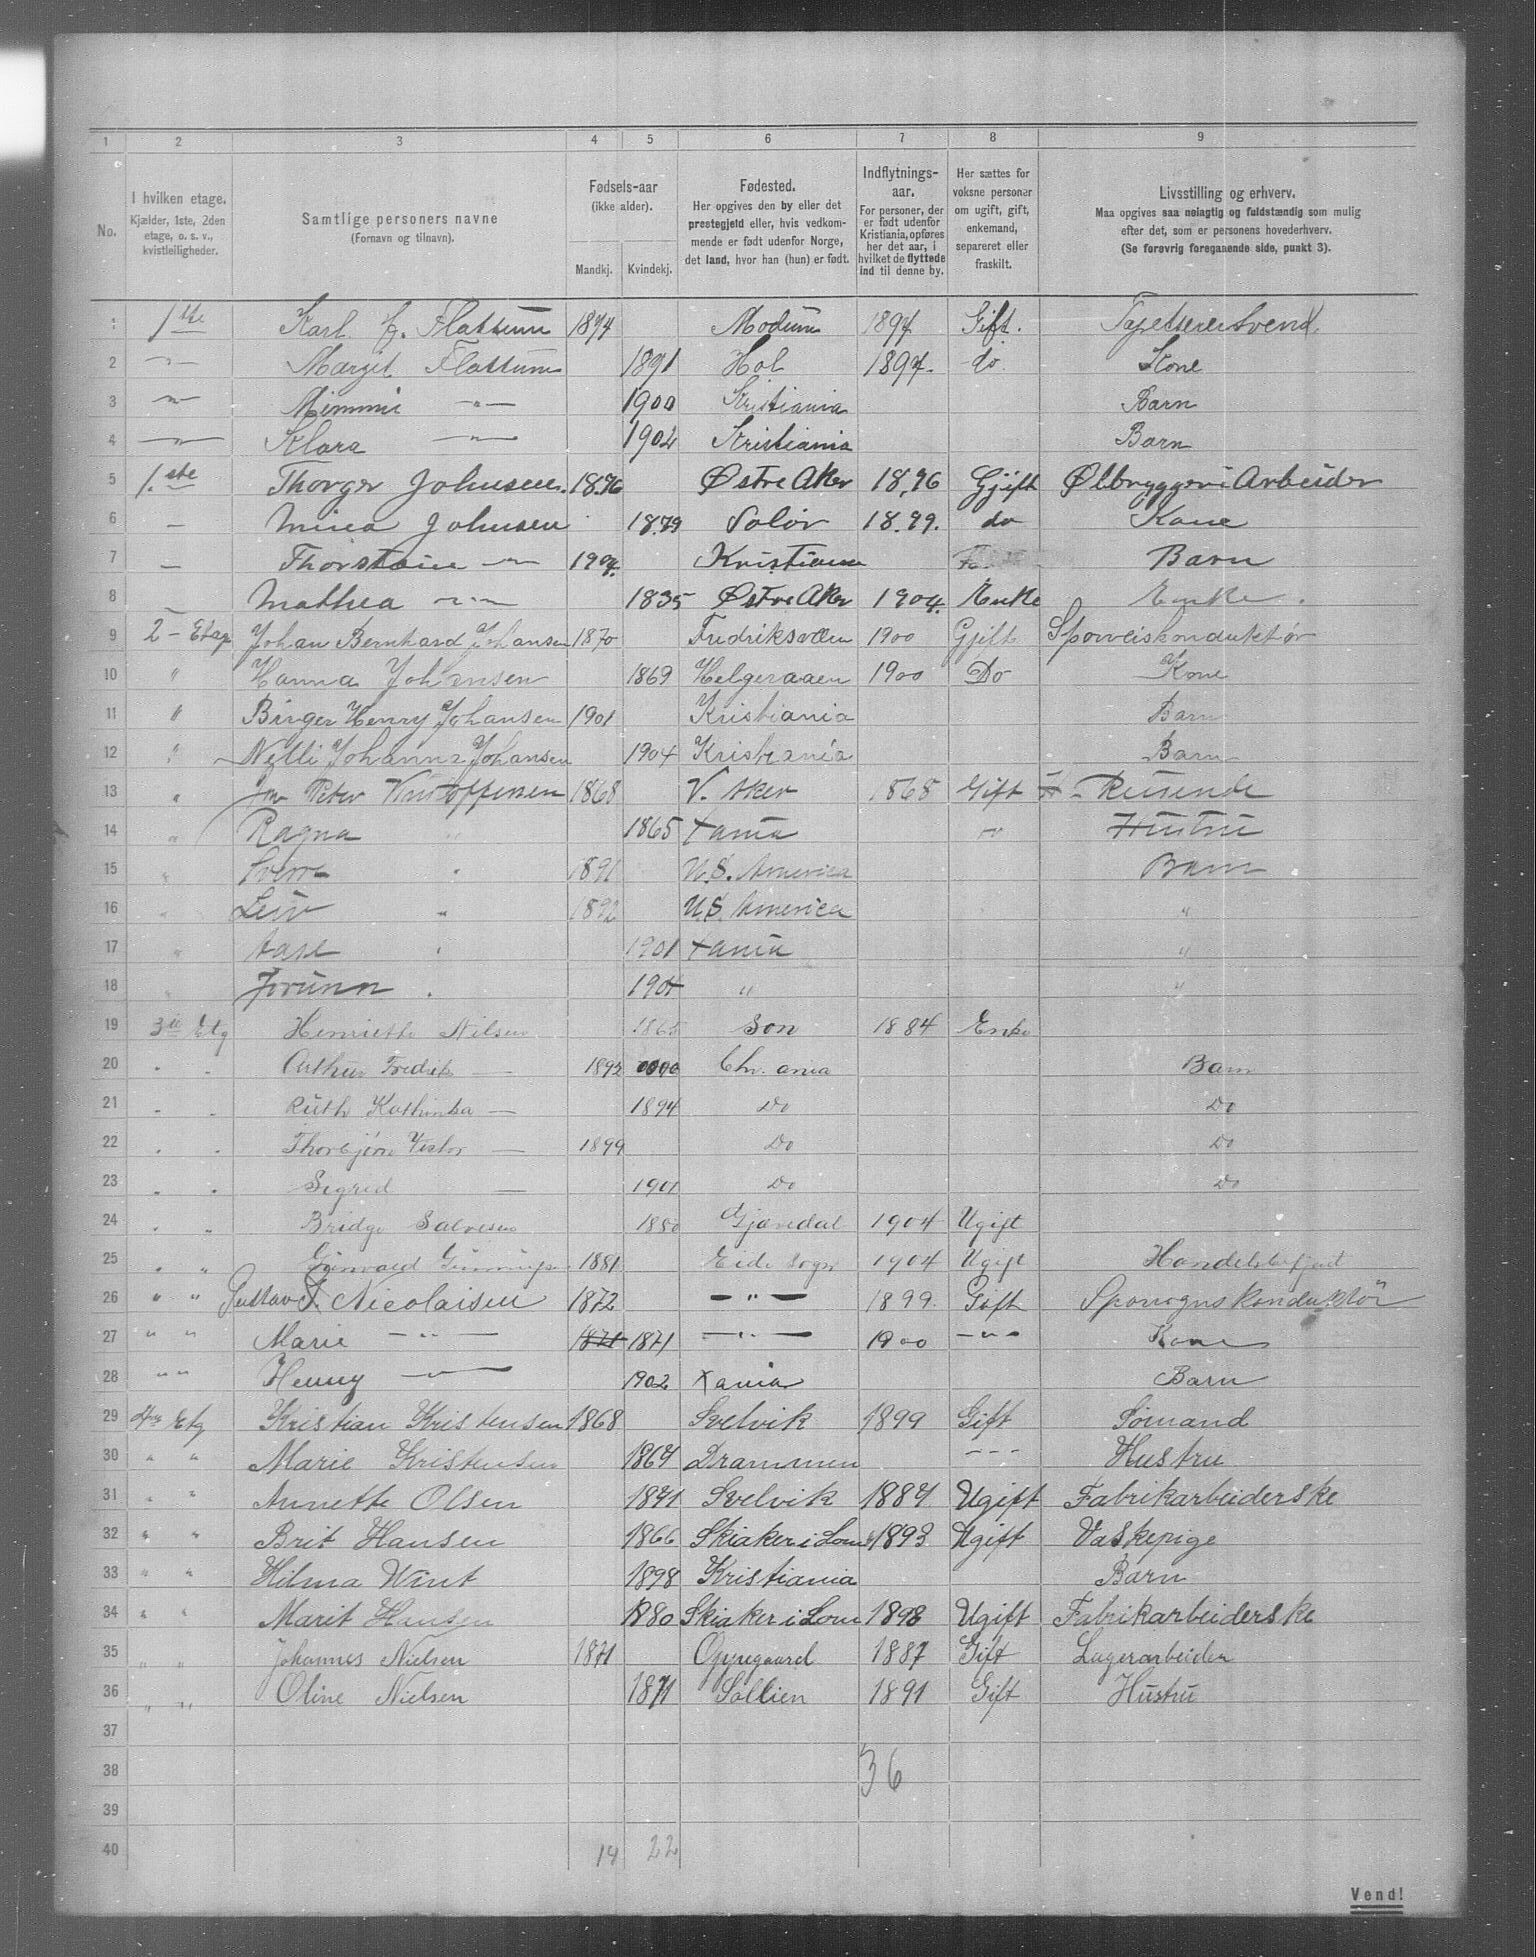 1 2 3 4 5 6 7 8 9
No.
I hvilken etage.
Kjælder, 1ste, 2den
etage, o. s. v.,
kvistleiligheder.
Samtlige personers navne
(Fornavn og tilnavn).
Fødsels-aar
(ikke alder).
Mandkj. Kvindekj.
Fødested.
Her opgives den by eller det
prestegjeld eller, hvis vedkom-
mende er født udenfor Norge,
det land, hvor han (hun) er født.
Indflytnings-
aar.
For personer, der
er født udenfor
Kristiania, opføres
her det aar, i
hvilket de flyttede
ind til denne by.
Her sættes for
voksne personer
om ugift, gift,
enkemand,
separeret eller
fraskilt.
Livsstilling og erhverv.
Maa opgives saa nøiagtig og fuldstændig som mulig
efter det, som er personens hovederhverv.
(Se forøvrig foregaaende side, punkt 3).
1 1ste Karl Flattum 1874 Modum 1897 Gift. Tapetserersvend
2 -"- Margit Flattum 1871 Hol 1897. do. Kone
3 -"- Mimmi -"- 1900 Kristiania Barn
4 -"- Klara -"- 1902 Kristiania Barn
5 1.ste Thorger Johnsen. 1876 Østre Aker 1896 Gjift Ølbryggeri Arbeider
6 — Mina Johnsen 1879 Solør 1899. do Kone
7 — Thorstein -"- 1904. Kristiania Barn
8 — Mathea -"- 1835 Østre Aker 1904. Enke Enke.
9 2 - Etage Johan Bernhard Johansen 1870 Fredriksværn 1900 Gjift Sporveiskonduktør
10 " Hanna Johansen 1869 Helgeraaen 1900 Do Kone
11 " Birger Henry Johansen 1901 Kristiania Barn
12 " Nelli Johanna Johansen 1904 Kristiania Barn
13 " Peter Kristoffersen 1868 V. Aker 1868 Gift Reisende
14 " Ragna " 1865 Xania " Hustru
15 " Sverre " 1891 U.S. America Barn
16 " Leiv " 1892 U.S. America "
17 " Aase " 1901 Xania "
18 " Jorunn " 1904 " "
19 3die Etg Henriette Nilsen 1865 Son 1884 Enke
20 " " Arthur Fredrik — 1892 Chr.ania Barn
21 " " Ruth Kathinka — 1894 Do Do
22 " " Thorbjørn Victor — 1899 Do Do
23 " " Sigrid — 1901 Do Do
24 " " Bridge Salvesen 1880 Gjøvedal 1904 Ugift
25 " " Gunvald 1881 Eide sogn 1904 Ugift Handelsbetjent
26 " " Gustav Nicolaisen 1872 — " — 1899. Gift Sporvognskonduktør
27 " " Marie — " — 1871 1871 — " — 1900 — " — Kone
28 " " Henny — " — 1902 Xania Barn
29 4de Etg Kristian Kristensen 1868 Svelvik 1899 Gift Sømand
30 " " Marie Kristensen 1864 Drammen - - - Hustru
31 " " Annette Olsen 1871 Svelvik 1887 Ugift Fabrikarbeiderske
32 " " Brit Hansen 1866 Skiaker i Lom 1893 Ugift Vaskepige
33 " " Hilma Wint 1898 Kristiania Barn
34 " " Marit Hansen 1880 Skiaker i Lom 1898 Ugift Fabrikarbeiderske
35 " " Johannes Nielsen 1871 1887 Gift Lagerarbeider
36 " " Oline Nielsen 1871 Sollien 1891 Gift Hustru
37
38 36
39
40 14 22
Vend!